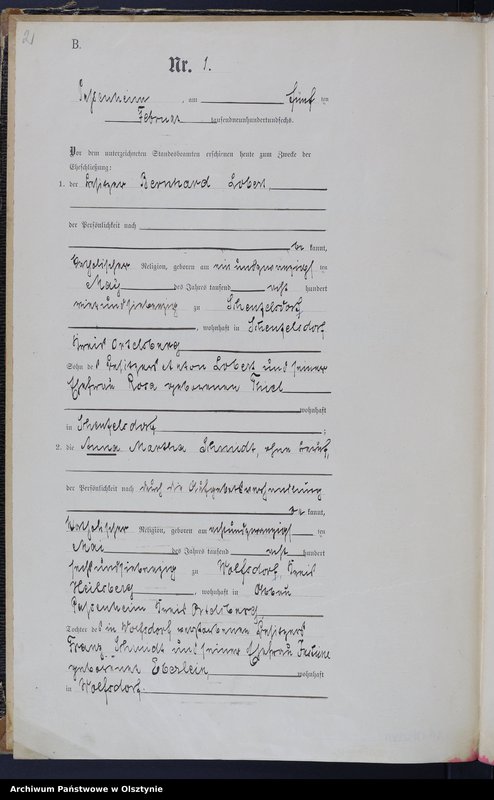 21
B.
Nr. 1.
Passenheim, am fünf ten
Februar tausendneunhundertundsechs.
Vor dem unterzeichneten Standesbeamten erschienen heute zum Zwecke der
Eheschließung:
1. der Besitzer Bernhard Lobert,
der Persönlichkeit nach
be kannt,
katholischer Religion, geboren am ein und zwanzigsten
Mai des Jahres tausend acht hundert
vierundsiebenzig zu Scheufelsdorf,
, wohnhaft in Scheufelsdorf
Kreis Ortelsburg
Sohn des Besitzers Anton Lobert und seiner
Ehefrau Rosa geborenen Thiel
wohnhaft
in Scheufelsdorf ;
2. die Anna Martha Schmidt, ohne Beruf,
der Persönlichkeit nach durch die Aufgebotsverhandlung
be kannt,
katholischer Religion, geboren am achtundzwanzigsten
Mai des Jahres tausend acht hundert
sechsundsiebenzig zu Wolfsdorf, Kreis
Heilsberg, wohnhaft in
Passenheim Kreis Ortelsburg
Tochter des in Wolfsdorf verstorbenen Besitzers
Franz Schmidt und seiner Ehefrau
geborenen Eberlein, wohnhaft
in Wolfsdorf.
Archiwum Państwowe w Olsztynie